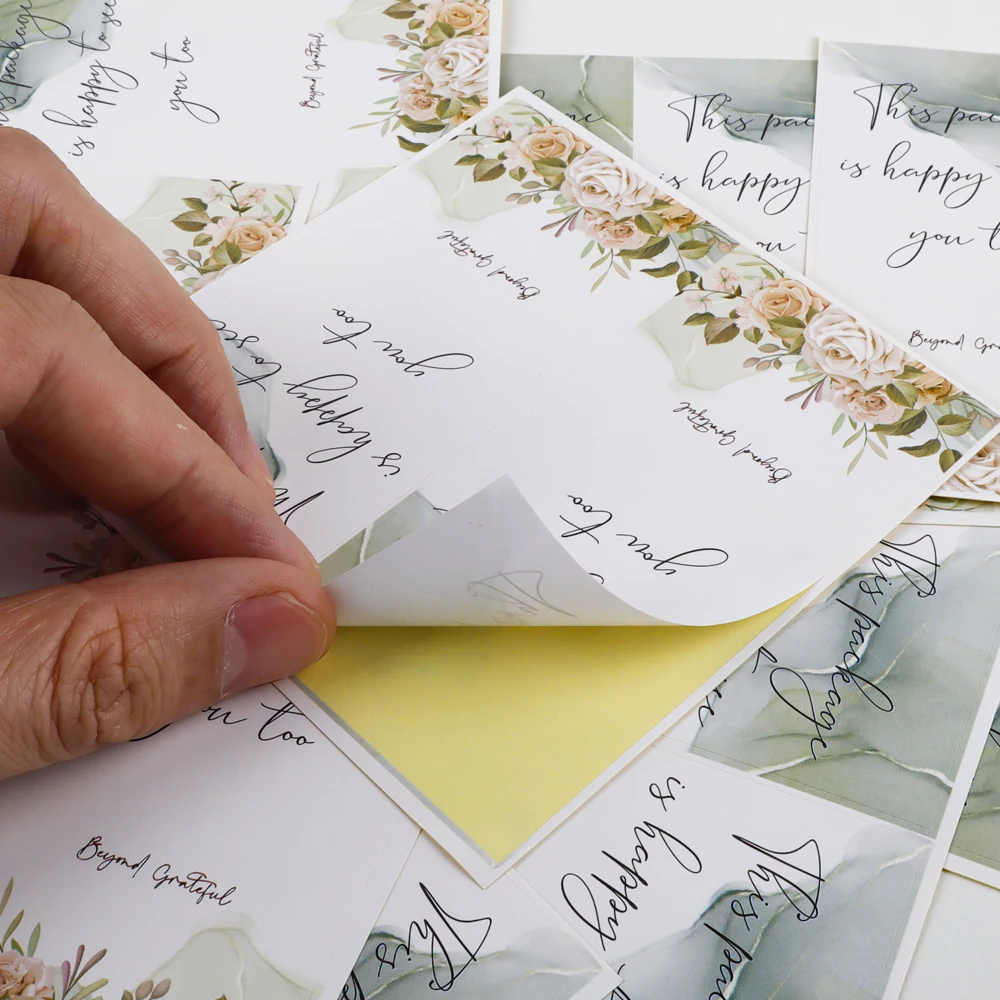 package
is happy to see
you too
Beyond Grateful
This pac
is happy
you
This pac
is happy
you t
Beyond Gra
Beyond Grateful
you too
is happy
to see
Beyond Grateful
you too
This package
you too
Beyond Grateful
This
is happy
This pac